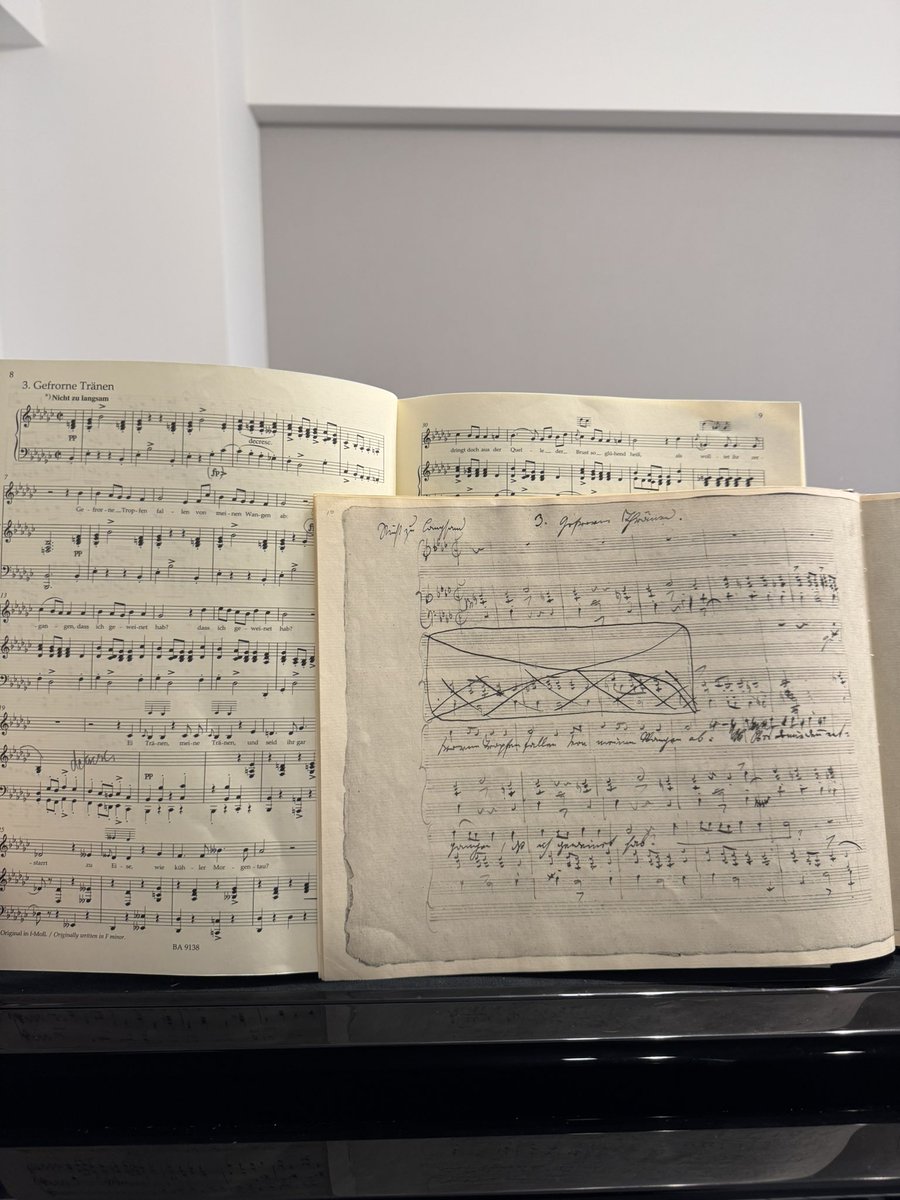 8
3. Gefrorne Tränen
*) Nicht zu langsam
pp
decresc.
(fp>)
7
Ge - fror - ne Trop - fen fal - len von mei - nen Wan - gen ab
pp
13
- gan - gen, dass ich ge - wei - net hab? dass ich ge - wei - net hab?
19
Ei Trä - nen, mei - ne Trä - nen, und seid ihr gar
pp
- starrt zu Ei - se, wie küh - ler Mor - gen - tau?
Original in f-Moll. / Originally written in F minor.
BA 9138
9
30
dringt doch aus der Quel - le der Brust so glü - hend heiß, als woll - tet ihr zer
10
Nicht zu langsam
3. Gefrorne Thränen.
frorne Tropfen fallen von meinen Wangen ab:
gangen, daß ich geweinet hab?